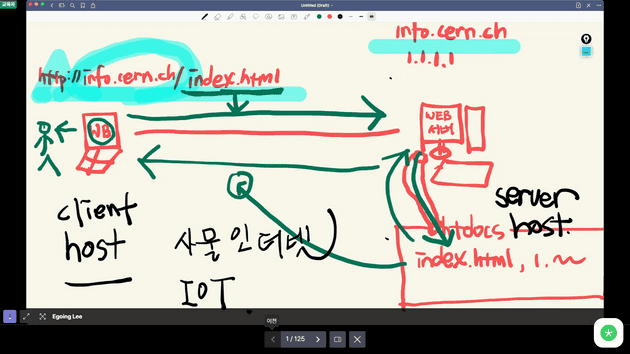 교육자
Untitled (Draft)
info.cern.ch
1.1.1.1
http://info.cern.ch/index.html
WB
WEB
서버
client
host
사물인터넷
IOT
server
host
htdocs
index.html, 1.
Egoing Lee
이전
1 / 125